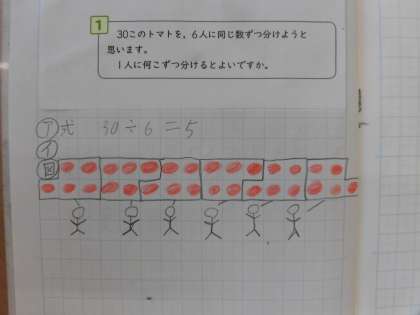 1
30このトマトを，6人に同じ数ずつ分けようと
思います。
1人に何こずつ分けるとよいですか。
ア 式 30÷6=5
イ
図